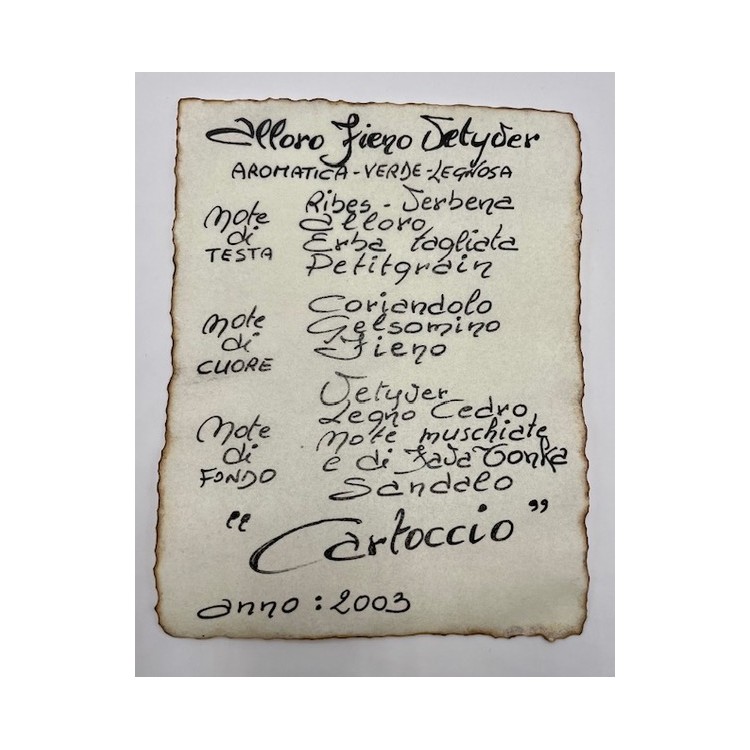 Alloro Fieno Vetyver
AROMATICA - VERDE - LEGNOSA
Note di TESTA
Ribes - Verbena
Alloro
Erba tagliata
Petitgrain
Note di CUORE
Coriandolo
Gelsomino
Fieno
Note di FONDO
Vetyver
Legno Cedro
Note muschiate
e di Fava Tonka
Sandalo
"Cartoccio"
anno: 2003